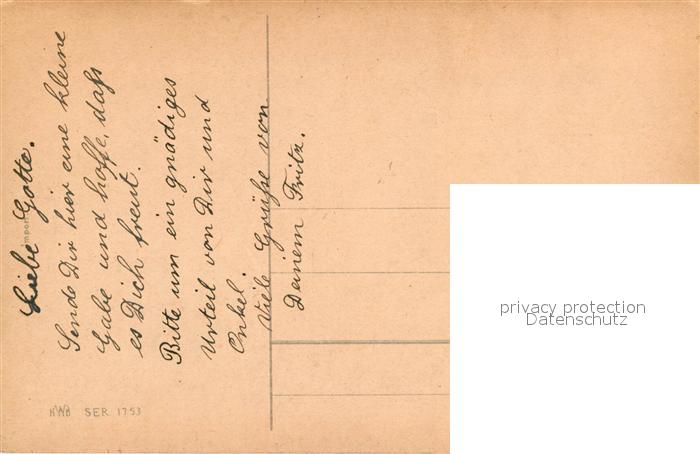 Liebe Gotte.
Sende Dir hier eine kleine
Gabe und hoffe, dass
es Dich freut.
Bitte um ein gnädiges
Urteil von Dir und
Onkel.
Viele Grüße von
Deinem Fritz.
SER. 1753
privacy protection
Datenschutz